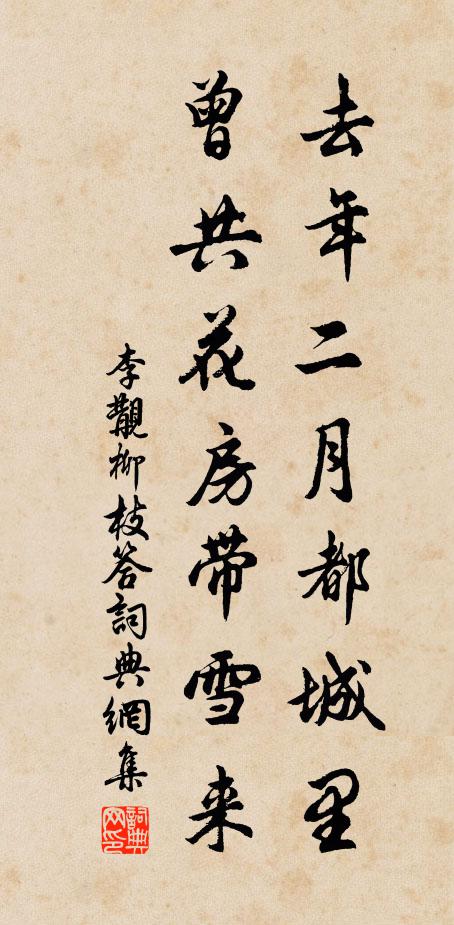 去年二月都城里
曾共花房带雪来
李觏柳枝答詞典網集
詞典网印